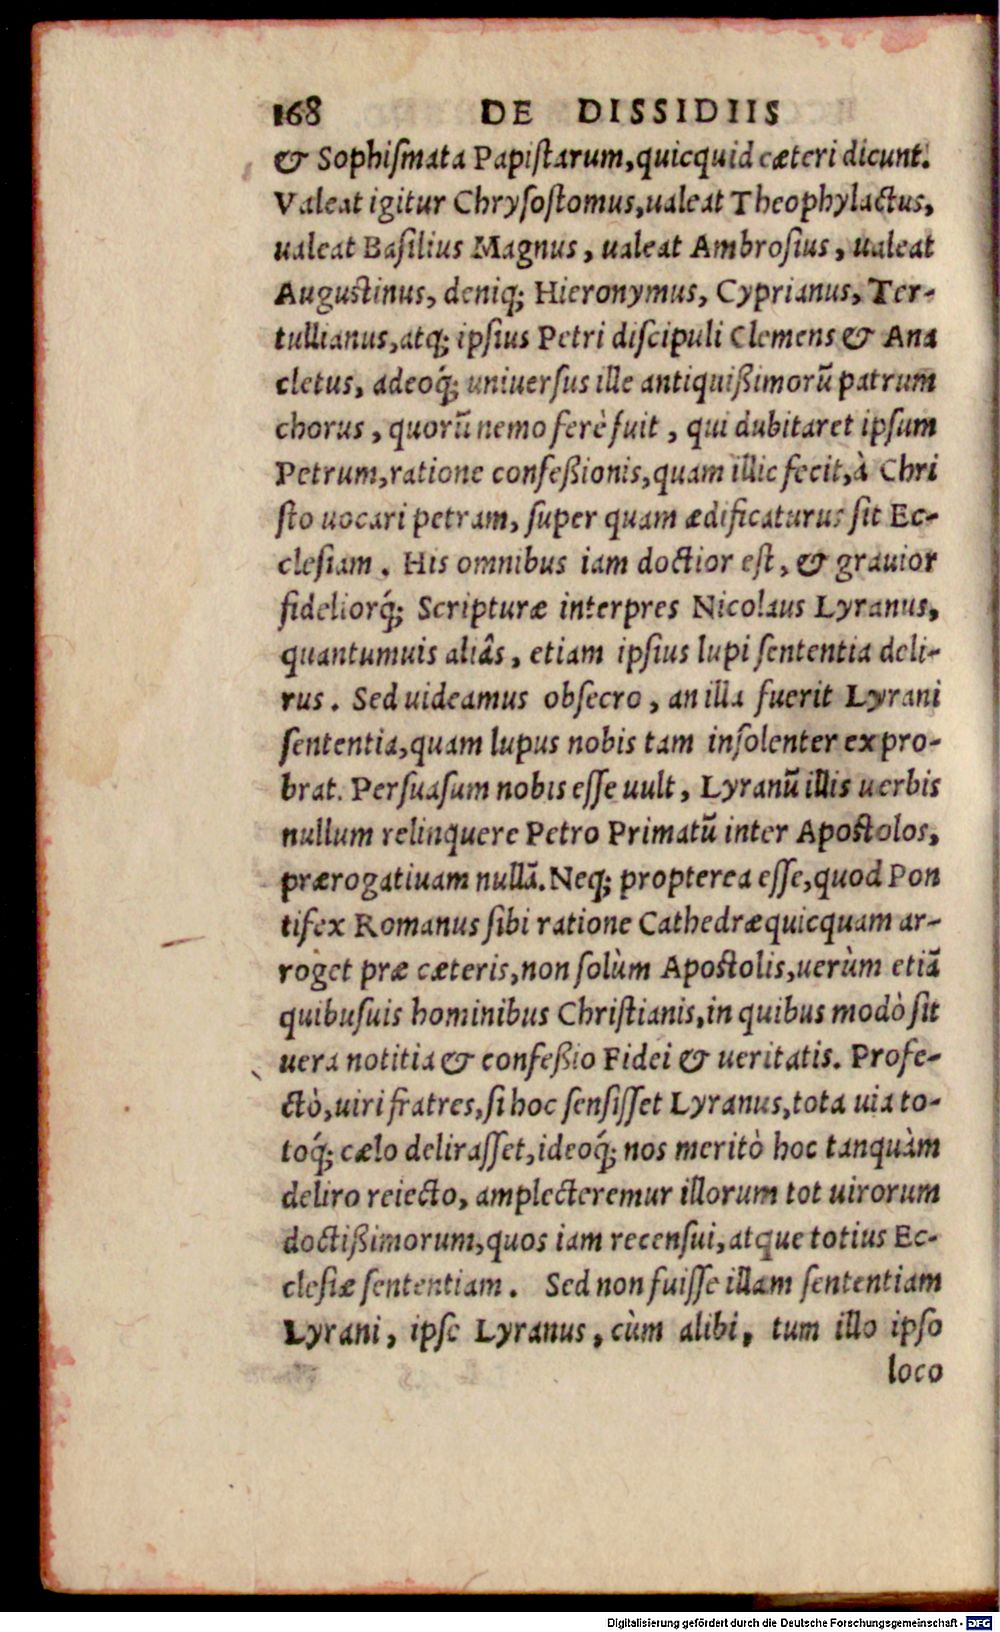 168 DE DISSIDIIS
& Sophiſmata Papiſtarum,quicquid cæteri dicunt.
Valeat igitur Chryſoſtomus,ualeat Theophylactus,
ualeat Baſilius Magnus, ualeat Ambroſius, ualeat
Auguſtinus, deniq; Hieronymus, Cyprianus, Ter-
tullianus,atq; ipſius Petri diſcipuli Clemens & Ana
cletus, adeoq́; uniuerſus ille antiquißimorũ patrum
chorus, quorũ nemo ferè fuit, qui dubitaret ipſum
Petrum,ratione confeßionis,quam illic fecit,à Chri
ſto uocari petram, ſuper quam ædificaturus ſit Ec-
cleſiam. His omnibus iam doctior eſt, & grauior
fideliorq́; Scripturæ interpres Nicolaus Lyranus,
quantumuis aliâs, etiam ipſius lupi ſententia deli-
rus. Sed uideamus obſecro, an illa fuerit Lyrani
ſententia,quam lupus nobis tam inſolenter expro-
brat. Perſuaſum nobis eſſe uult, Lyranũ illis uerbis
nullum relinquere Petro Primatũ inter Apoſtolos,
prærogatiuam nullã. Neq; propterea eſſe,quod Pon
tifex Romanus ſibi ratione Cathedræ quicquam ar-
roget præ cæteris,non ſolùm Apoſtolis,uerùm etiã
quibuſuis hominibus Chriſtianis,in quibus modò ſit
uera notitia & confeßio Fidei & ueritatis. Profe-
ctò,uiri fratres,ſi hoc ſenſiſſet Lyranus,tota uia to-
toq́; cælo deliraſſet,ideoq́; nos meritò hoc tanquàm
deliro reiecto, amplecteremur illorum tot uirorum
doctißimorum,quos iam recenſui,atque totius Ec-
cleſiæ ſententiam. Sed non fuiſſe illam ſententiam
Lyrani, ipſe Lyranus, cùm alibi, tum illo ipſo
loco
Digitalisierung gefördert durch die Deutsche Forschungsgemeinschaft - DFG